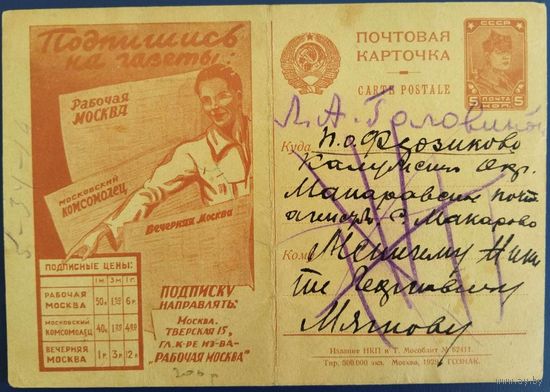 Подпишись
на газеты:
Рабочая
МОСКВА
МОСКОВСКИЙ
КОМСОМОЛЕЦ
Вечерняя Москва
ПОДПИСНЫЕ ЦЕНЫ:
1 м. 3 м. 1 г.
РАБОЧАЯ
МОСКВА 50к.
МОСКОВСКИЙ
КОМСОМОЛЕЦ 40к.
ВЕЧЕРНЯЯ
МОСКВА 1 р. 3 р. 12 р.
ПОДПИСКУ
НАПРАВЛЯТЬ:
МОСКВА.
ТВЕРСКАЯ 15,
ГЛ. К-РЕ ИЗ-ВА
„РАБОЧАЯ МОСКВА"
ПОЧТОВАЯ
КАРТОЧКА
CARTE POSTALE
СССР
5 ПОЧТА 5
КОП.
Л. А. Головиной
Куда п.о. Ферзиково
Калужский окр.
Макаровское почт.
с. Макарово
Кому
Мягкову
Издание НКП и Т. Мособлит № 62411.
Тир. 500.000 экз. Москва, ГОЗНАК.